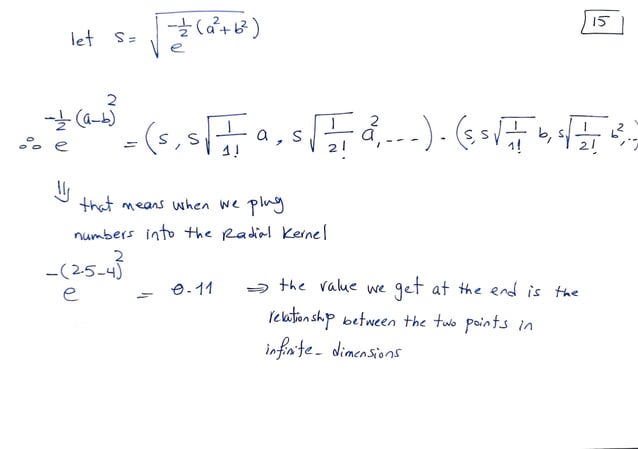 15
let s = √(e^(-1/2 (a²+b²)))
∴ e^(-1/2 (a-b)²) = (s, s√(1/1!) a, s√(1/2!) a², ---) . (s, s√(1/1!) b, s√(1/2!) b², ..)
⇓ that means when we plug
numbers into the Radial Kernel
e^(-(2.5-4)²) = 0.11 ⇒ the value we get at the end is the
relationship between the two points in
infinite-dimensions